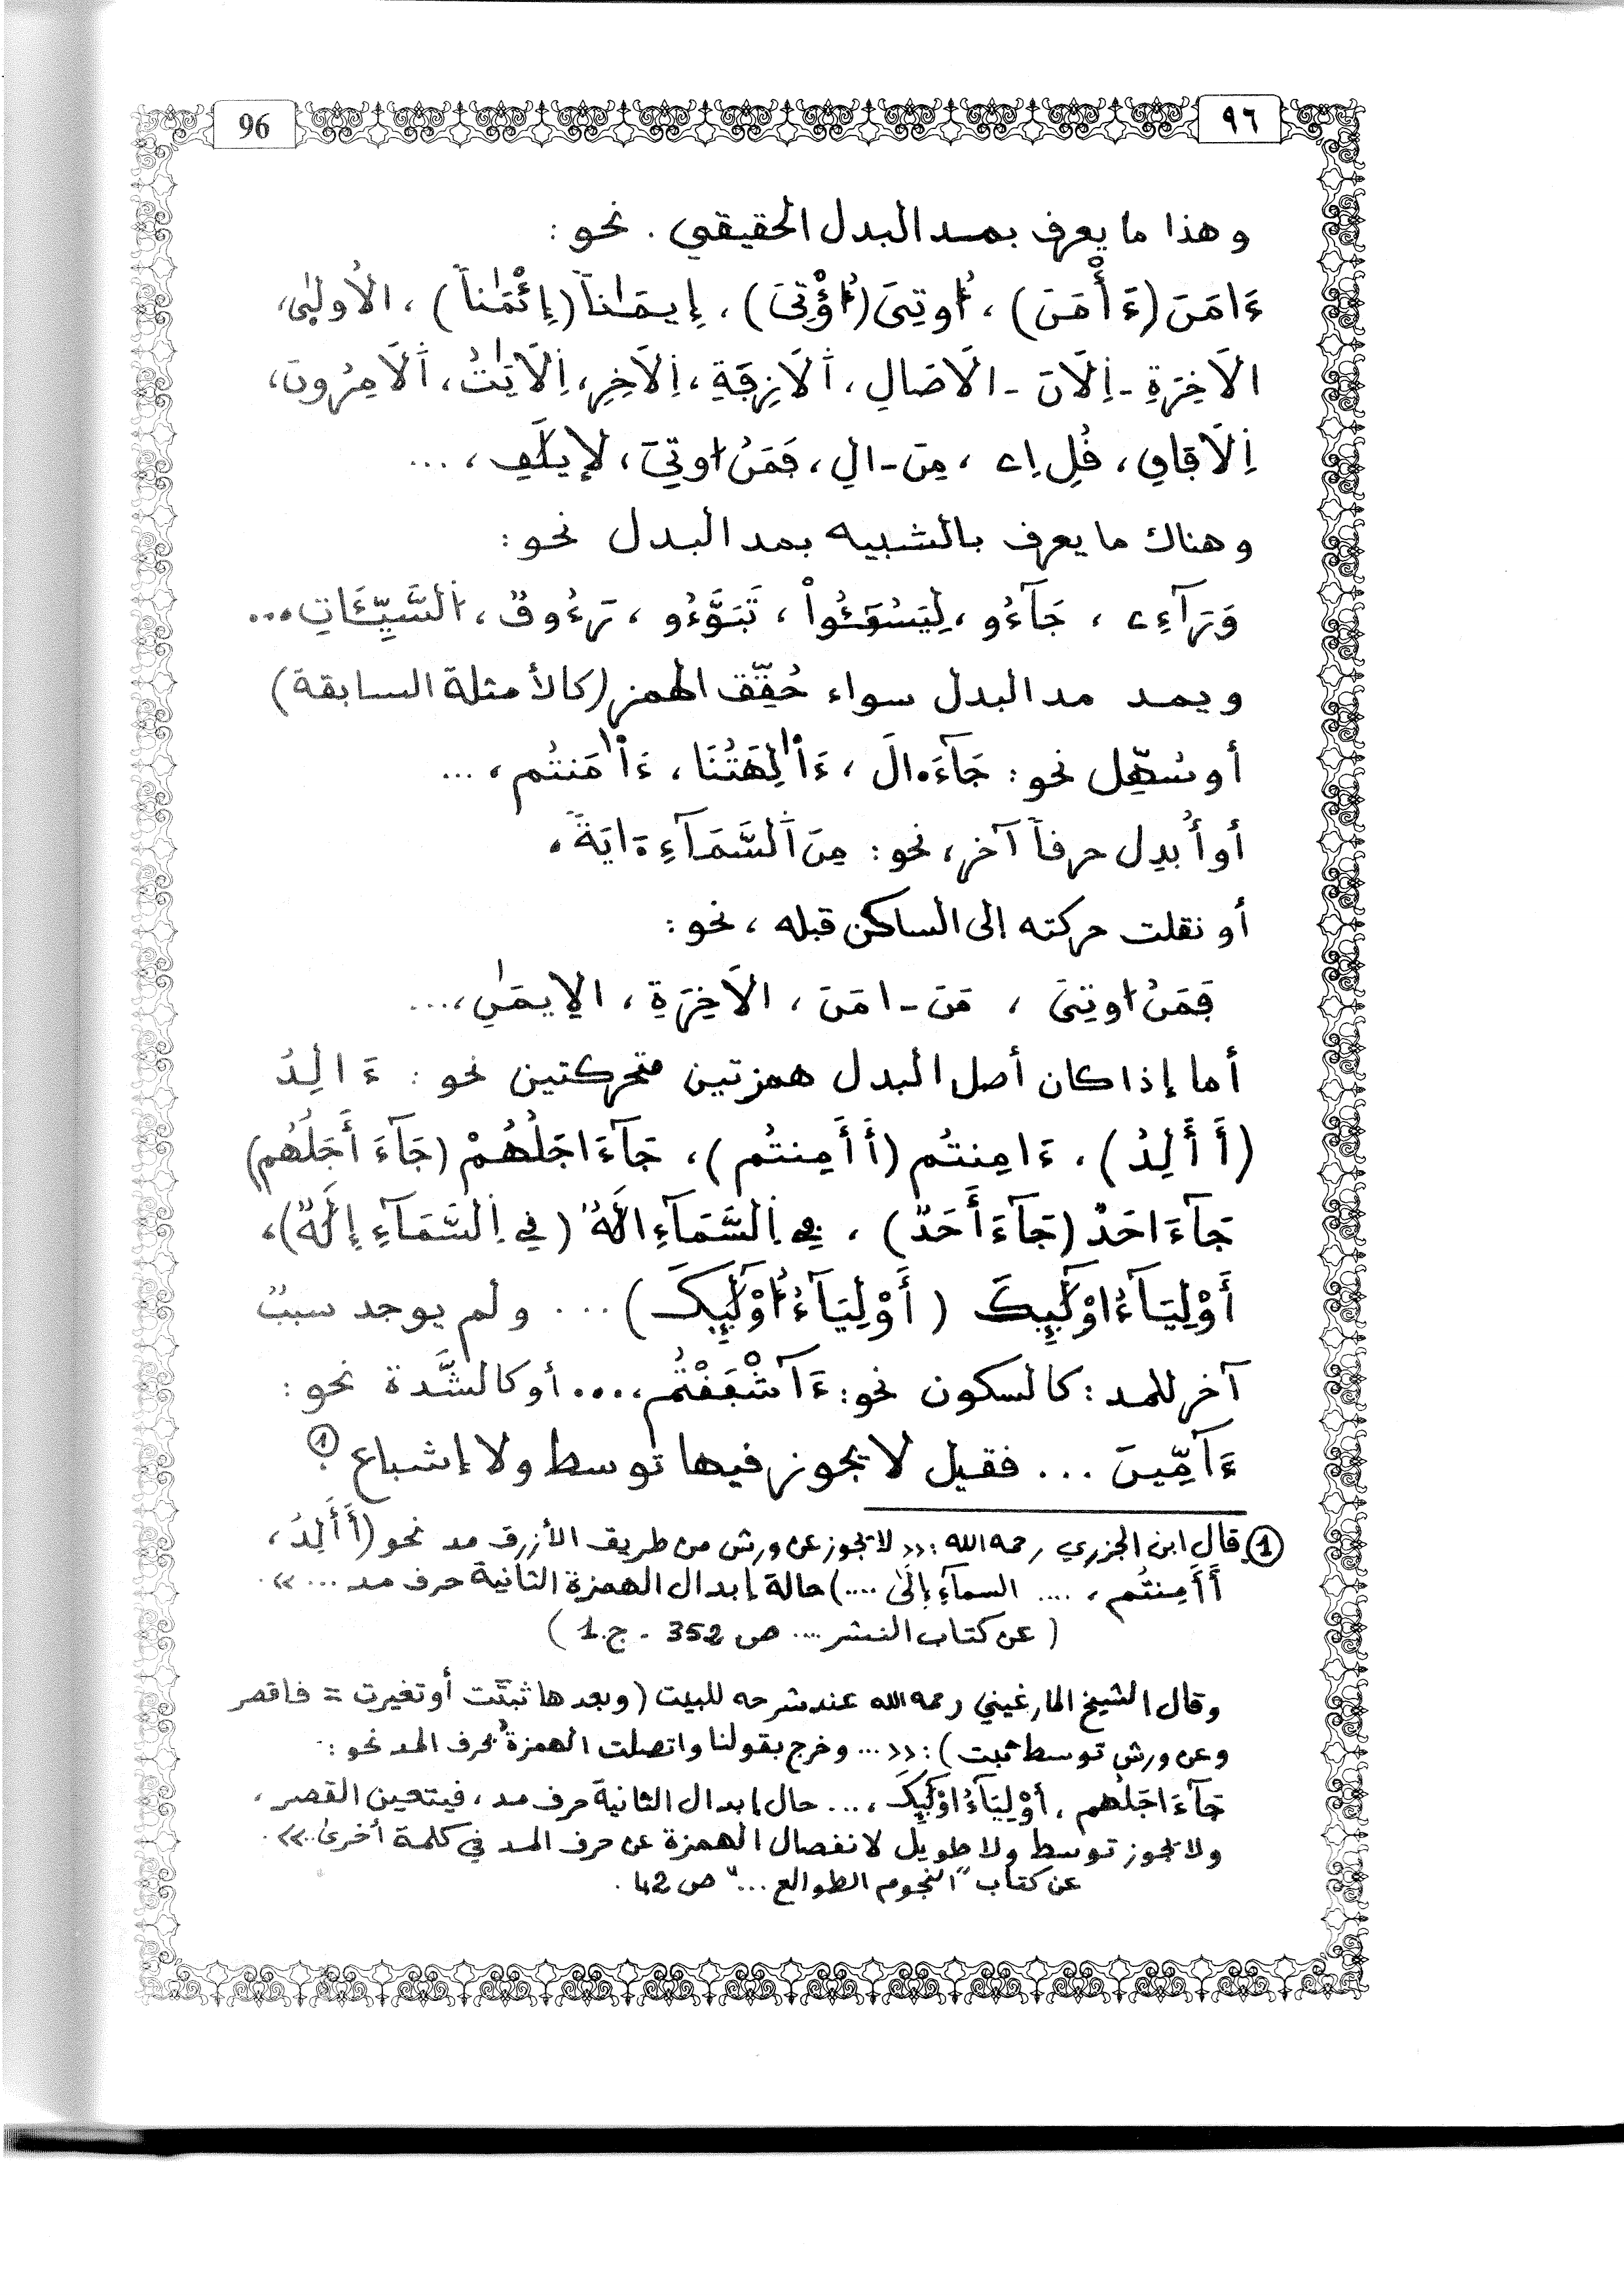 96
٩٦
وهذا ما يعرف بمد البدل الحقيقي . نحو :
ءَامَنَ (ءَأْمَنَ) ، اُوتِىَ (اُؤْتِىَ) ، إِيمَٰناً (إِئْمَٰناً) ، الُاولىٰ،
الَاخِرَةِ - اِ۬لَانَ - الَاصَالِ ، اَ۬لَازِفَةِ ، اِ۬لَاخِرِ ، اِ۬لَايَٰتُ ، اَ۬لَامِرُونَ ،
اِ۬لَافَاقِ ، قُلِ اِے ، مِنَ - الِ ، فَمَنُ اوتِيَ ، لإِيلَٰفِ ، ...
وهناك ما يعرف بالشبيه بمد البدل نحو :
وَرَآءِے ، جَآءُو ، لِيَسُـُٔواْ ، تَبَوَّءُو ، رَءُوفٌ ، اَ۬لسَّيِّـَٔاتِ ...
ويمد مد البدل سواء حُقِّق الهمز (كالأمثلة السابقة)
أو سُهِّل نحو : جَآءَ الَ ، ءَا۬لِهَتُنَا ، ءَا۬مَنتُم ، ...
أو أُبدِل حرفاً آخر ، نحو : مِنَ اَ۬لسَّمَآءِ ايَةً .
أو نقلت حركته إلى الساكن قبله ، نحو :
فَمَنُ اوتِىَ ، مَنَ - امَنَ ، الَاخِرَةِ ، الِايمَٰنِ ، ...
أما إذا كان أصل البدل همزتين متحركتين نحو : ءَالِدُ
(أَأَلِدُ) ، ءَامِنتُم (أَأَمِنتُم) ، جَآءَ اجَلُهُمْ (جَآءَ أَجَلُهُم)
جَآءَ احَدٌ (جَآءَ أَحَدٌ) ، فِے اِ۬لسَّمَآءِ الَٰهٌ (فِي اِ۬لسَّمَآءِ إِلَٰهٌ) ،
أَوْلِيَآءُ اوْلَٰٓئِكَ (أَوْلِيَآءُ اُوْلَٰٓئِكَ) ... ولم يوجد سببٌ
آخر للمد : كالسكون نحو : ءَآشْفَقْتُم ، .... أو كالشَّدة نحو :
ءَآمِّينَ ... فقيل لا يجوز فيها توسط ولا إشباع ① .
① قال ابن الجزري رحمه الله : << لا يجوز عن ورش من طريق الأزرق مد نحو (أَأَلِدُ ،
أَأَمِنتُم ، .... السمآءِ إلَىٰ ....) حالة إبدال الهمزة الثانية حرف مد ... >> .
(عن كتاب النشر .... ص 352 . ج.1)
وقال الشيخ المارغيني رحمه الله عند شرحه للبيت (وبعدها ثبتت أو تغيرت = فاقصر
وعن ورش توسط ثبت) : << ... وخرج بقولنا واتصلت الهمزةُ بحرف المد نحو :
جَآءَ اجَلُهم ، أَوْلِيَآءُ اوْلَٰٓئِكَ ، ... حال إبدال الثانية حرف مد ، فيتعين القصر ،
ولا يجوز توسط ولا طويل لانفصال الهمزة عن حرف المد في كلمة أخرىٰ .. >> .
عن كتاب "النجوم الطوالع ..." ص 42 .